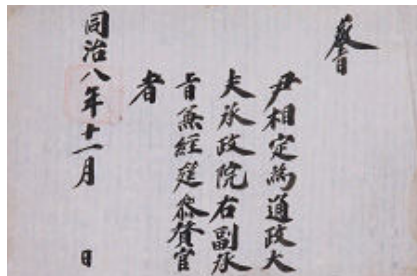 敎旨
尹相定爲通政大
夫承政院右副承
旨兼經筵叅贊官
者
同治八年十一月 日